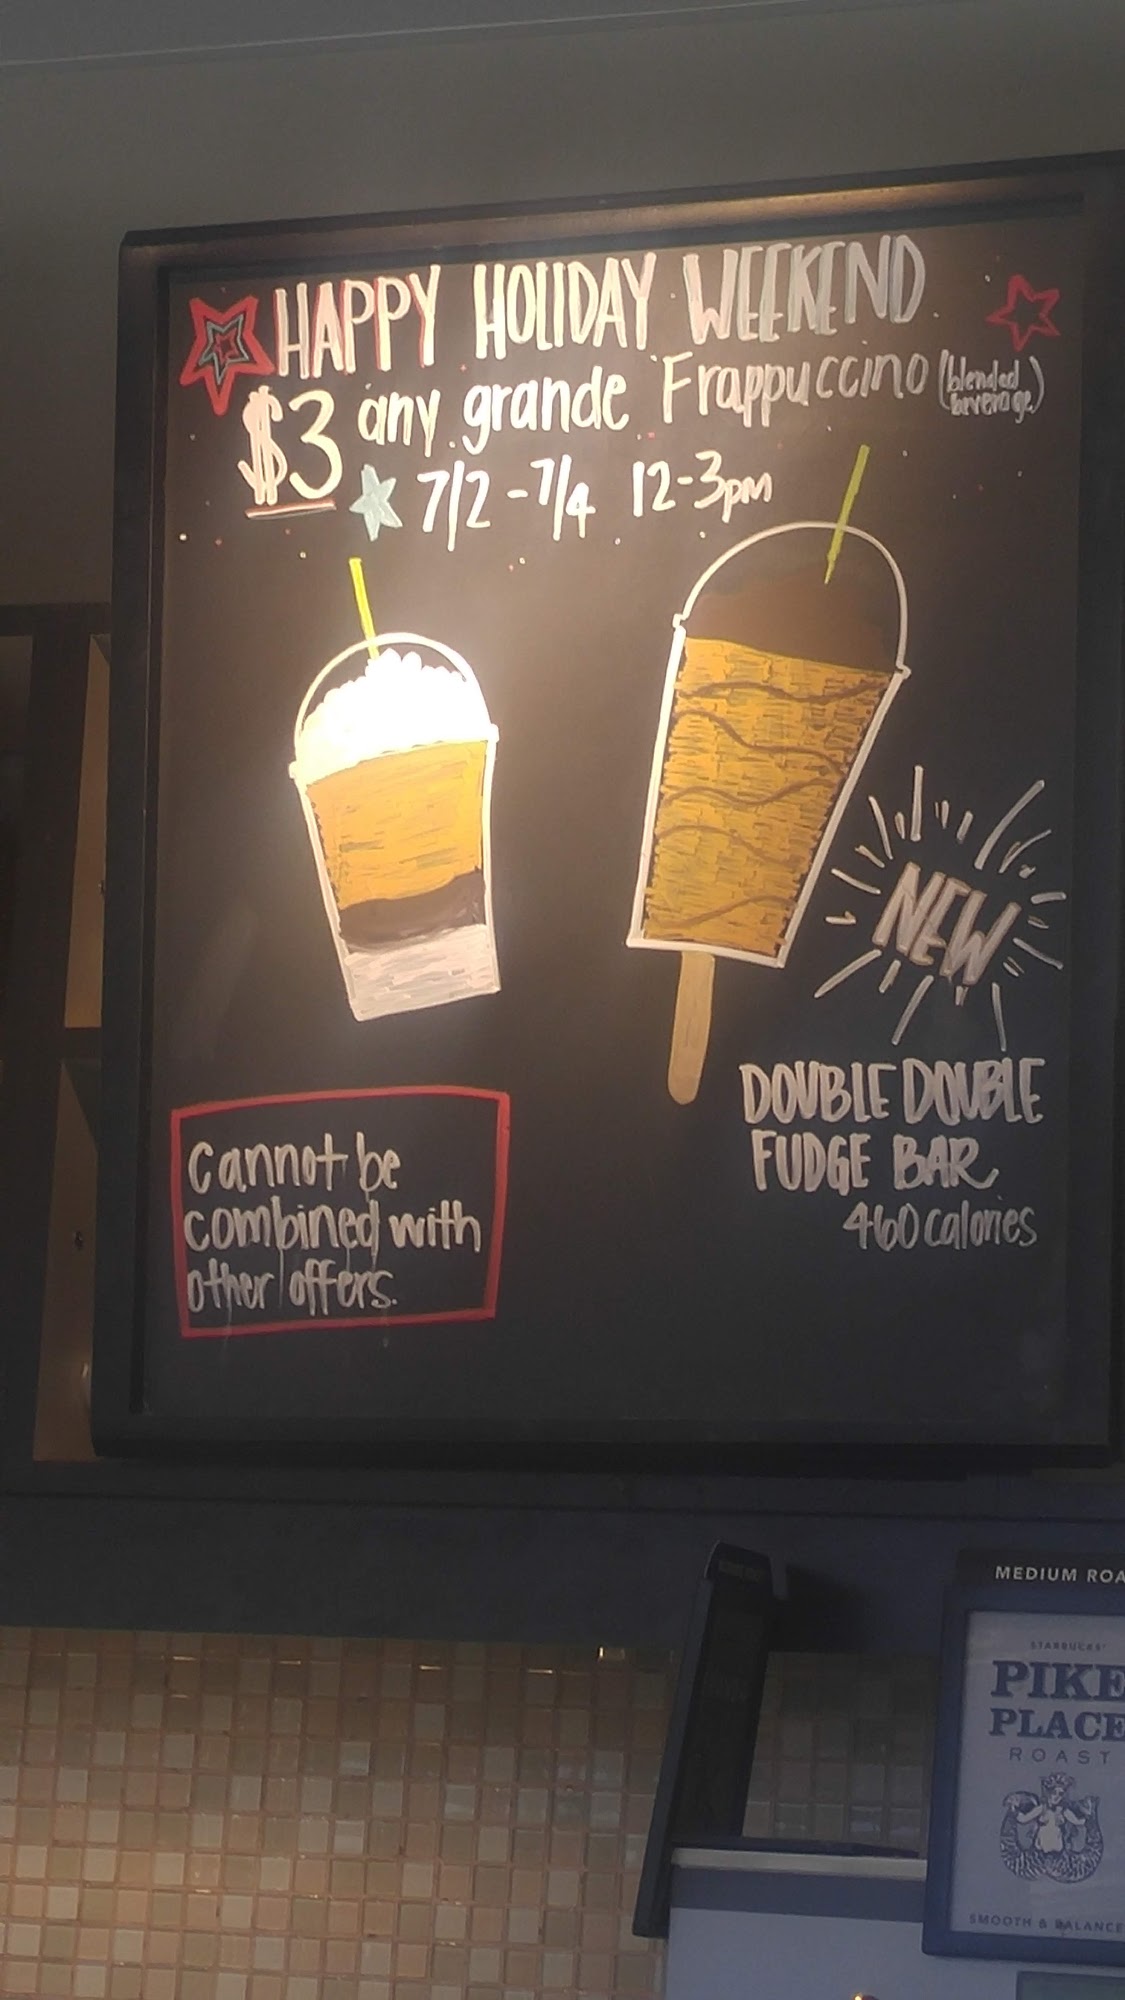 HAPPY HOLIDAY WEEKEND
$3 any grande Frappuccino (blended beverage)
7/2-7/4 12-3pm
NEW
DOUBLE DOUBLE
FUDGE BAR
460 calories
Cannot be
combined with
other offers.
MEDIUM ROA
STARBUCKS®
PIKE
PLACE
ROAST
SMOOTH & BALANCE